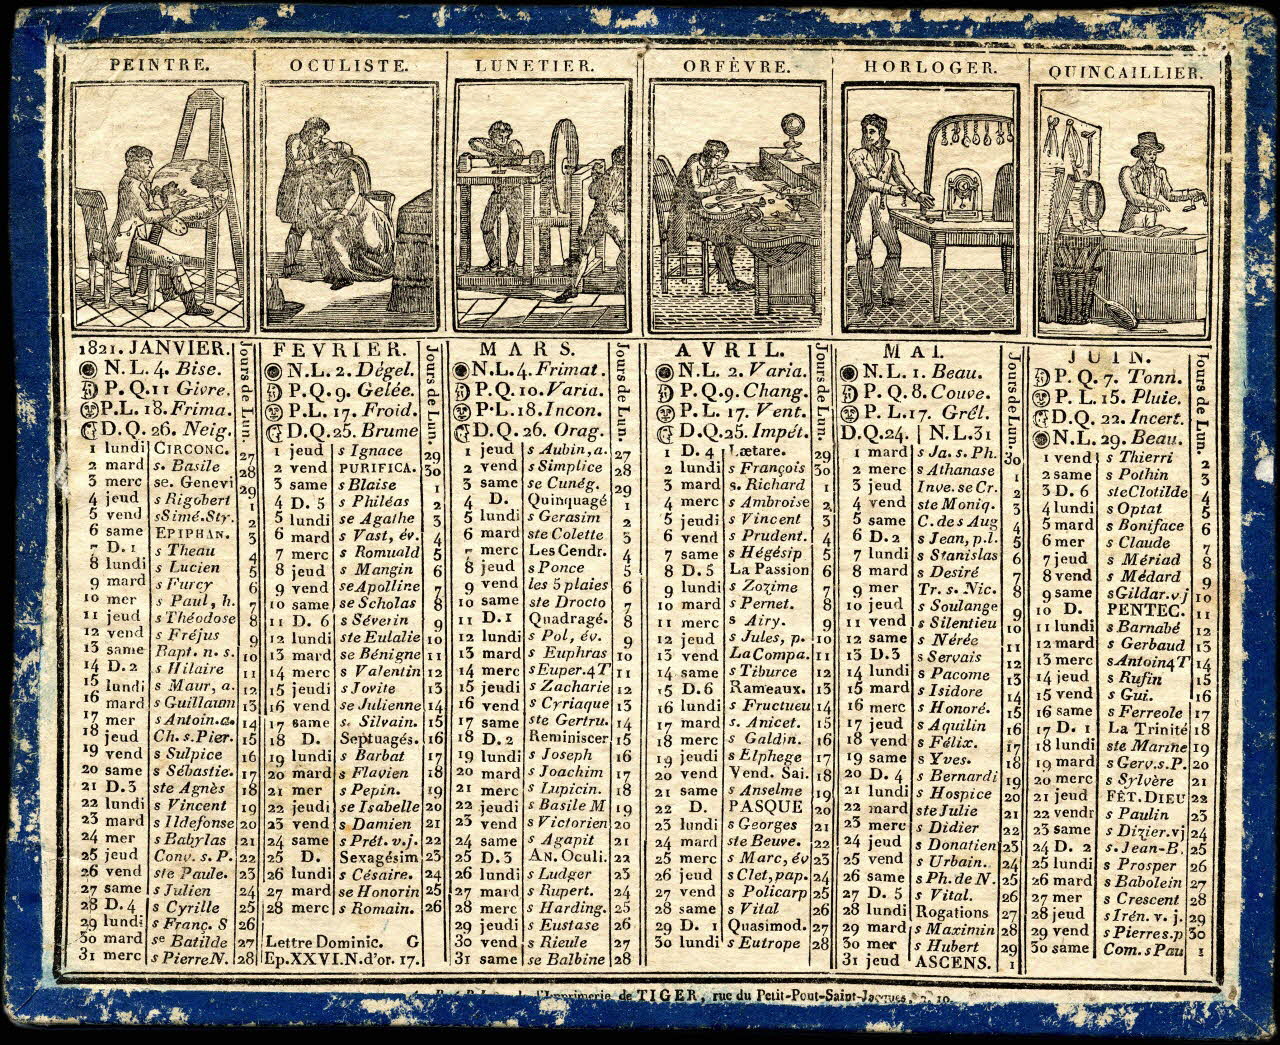 PEINTRE.
OCULISTE.
LUNETIER.
ORFÈVRE.
HORLOGER.
QUINCAILLIER.
1821. JANVIER.
Jours de Lun.
N.L. 4. Bise.
P.Q. 11 Givre.
P.L. 18. Frima.
D.Q. 26. Neig.
1 lundi CIRCONC. 27
2 mard s. Basile 28
3 merc se. Genevi 29
4 jeud s Rigobert 1
5 vend s Simé. Str. 2
6 same EPIPHAN. 3
7 D. 1 s Theau 4
8 lundi s Lucien 5
9 mard s Furcy 6
10 mer s Paul, h. 7
11 jeud s Théodose 8
12 vend s Fréjus 9
13 same Bapt. n. s. 10
14 D. 2 s Hilaire 11
15 lundi s Maur, a. 12
16 mard s Guillaum 13
17 mer s Antoin. a. 14
18 jeud Ch. s. Pier. 15
19 vend s Sulpice 16
20 same s Sébastie. 17
21 D. 3 ste Agnès 18
22 lundi s Vincent 19
23 mard s Ildefonse 20
24 mer s Babylas 21
25 jeud Conv. s. P. 22
26 vend ste Paule. 23
27 same s Julien 24
28 D. 4 s Cyrille 25
29 lundi s Franç. S 26
30 mard se Batilde 27
31 merc s Pierre N. 28
FEVRIER.
Jours de Lun.
N.L. 2. Dégel.
P.Q. 9. Gelée.
P.L. 17. Froid.
D.Q. 25. Brume
1 jeud s Ignace 29
2 vend PURIFICA. 30
3 same s Blaise 1
4 D. 5 s Philéas 2
5 lundi se Agathe 3
6 mard s Vast, év. 4
7 merc s Romuald 5
8 jeud s Mangin 6
9 vend se Apolline 7
10 same se Scholas 8
11 D. 6 s Séverin 9
12 lundi ste Eulalie 10
13 mard se Bénigne 11
14 merc s Valentin 12
15 jeudi s Jovite 13
16 vend se Julienne 14
17 same s Silvain. 15
18 D. Septuagés. 16
19 lundi s Barbat 17
20 mard s Flavien 18
21 mer s Pepin. 19
22 jeudi se Isabelle 20
23 vend s Damien 21
24 same s Prét. v. j. 22
25 D. Sexagésim 23
26 lundi s Césaire. 24
27 mard se Honorin 25
28 merc s Romain. 26
Lettre Dominic. G
Ep. XXVI. N. d'or. 17.
MARS.
Jours de Lun.
N.L. 4. Frimat.
P.Q. 10. Varia.
P.L. 18. Incon.
D.Q. 26. Orag.
1 jeud s Aubin, a. 27
2 vend s Simplice 28
3 same se Cunég. 29
4 D. Quinquagé 1
5 lundi s Gerasim 2
6 mard ste Colette 3
7 merc Les Cendr. 4
8 jeud s Ponce 5
9 vend les 5 plaies 6
10 same ste Drocto 7
11 D. 1 Quadragé. 8
12 lundi s Pol, év. 9
13 mard s Euphras 10
14 merc s Euper. 4 T 11
15 jeudi s Zacharie 12
16 vend s Cyriaque 13
17 same ste Gertru. 14
18 D. 2 Reminiscer 15
19 lundi s Joseph 16
20 mard s Joachim 17
21 merc s Lupicin. 18
22 jeudi s Basile M 19
23 vend s Victorien 20
24 same s Agapit 21
25 D. 3 AN. Oculi. 22
26 lundi s Ludger 23
27 mard s Rupert. 24
28 merc s Harding. 25
29 jeudi s Eustase 26
30 vend s Rieule 27
31 same se Balbine 28
AVRIL.
Jours de Lun.
N.L. 2. Varia.
P.Q. 9. Chang.
P.L. 17. Vent.
D.Q. 25. Impét.
1 D. 4 Lætare. 29
2 lundi s François 30
3 mard s. Richard 1
4 merc s Ambroise 2
5 jeudi s Vincent 3
6 vend s Prudent. 4
7 same s Hégésip 5
8 D. 5 La Passion 6
9 lundi s Zozime 7
10 mard s Pernet. 8
11 merc s Airy. 9
12 jeud s Jules, p. 10
13 vend La Compa. 11
14 same s Tiburce 12
15 D. 6 Rameaux. 13
16 lundi s Fructueu 14
17 mard s. Anicet. 15
18 merc s Galdin. 16
19 jeudi s Elphege 17
20 vend Vend. Sai. 18
21 same s Anselme 19
22 D. PASQUE 20
23 lundi s Georges 21
24 mard ste Beuve. 22
25 merc s Marc, év 23
26 jeud s Clet, pap. 24
27 vend s Policarp 25
28 same s Vital 26
29 D. 1 Quasimod. 27
30 lundi s Eutrope 28
MAI.
Jours de Lun.
N.L. 1. Beau.
P.Q. 8. Couve.
P.L. 17. Grêl.
D.Q. 24. N.L. 31
1 mard s Ja. s. Ph. 30
2 merc s Athanase 1
3 jeud Inve. se Cr. 2
4 vend ste Moniq. 3
5 same C. des Aug 4
6 D. 2 s Jean, p. l. 5
7 lundi s Stanislas 6
8 mard s Desiré 7
9 mer Tr. s. Nic. 8
10 jeud s Soulange 9
11 vend s Silentieu 10
12 same s Nérée 11
13 D. 3 s Servais 12
14 lundi s Pacome 13
15 mard s Isidore 14
16 merc s Honoré. 15
17 jeud s Aquilin 16
18 vend s Félix. 17
19 same s Yves. 18
20 D. 4 s Bernardi 19
21 lundi s Hospice 20
22 mard ste Julie 21
23 merc s Didier 22
24 jeud s Donatien 23
25 vend s Urbain. 24
26 same s Ph. de N. 25
27 D. 5 s Vital. 26
28 lundi Rogations 27
29 mard s Maximin 28
30 mer s Hubert 29
31 jeud ASCENS. 1
JUIN.
Jours de Lun.
P.Q. 7. Tonn.
P.L. 15. Pluie.
D.Q. 22. Incert.
N.L. 29. Beau.
1 vend s Thierri 2
2 same s Pothin 3
3 D. 6 ste Clotilde 4
4 lundi s Optat 5
5 mard s Boniface 6
6 mer s Claude 7
7 jeud s Mériad 8
8 vend s Médard 9
9 same s Gildar. v. j 10
10 D. PENTEC. 11
11 lundi s Barnabé 12
12 mard s Gerbaud 13
13 merc s Antoin 4 T 14
14 jeud s Rufin 15
15 vend s Gui. 16
16 same s Ferreole 17
17 D. 1 La Trinité 18
18 lundi ste Marine 19
19 mard s Gerv. s. P. 20
20 merc s Sylvère 21
21 jeud FÊT. DIEU 22
22 vendr s Paulin 23
23 same s Dizier. vj 24
24 D. 2 s. Jean-B. 25
25 lundi s Prosper 26
26 mard s Babolein 27
27 mer s Crescent 28
28 jeud s Irén. v. j. 29
29 vend s Pierre s. p 30
30 same Com. s Pau 1
de l'Imprimerie de TIGER, rue du Petit-Pont-Saint-Jacques, n. 10.